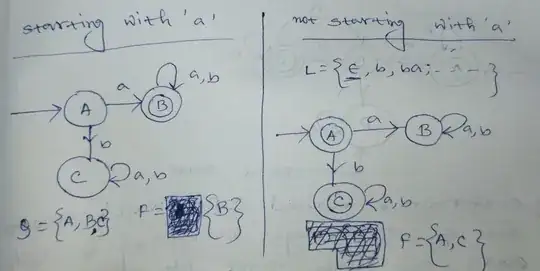 starting with 'a'
a
a, b
A
B
b
C
a, b
Q = {A, B, C}
F = {B}
not starting with 'a'
L = {ϵ, b, ba, - - -}
A
a
B
a, b
b
C
a, b
F = {A, C}